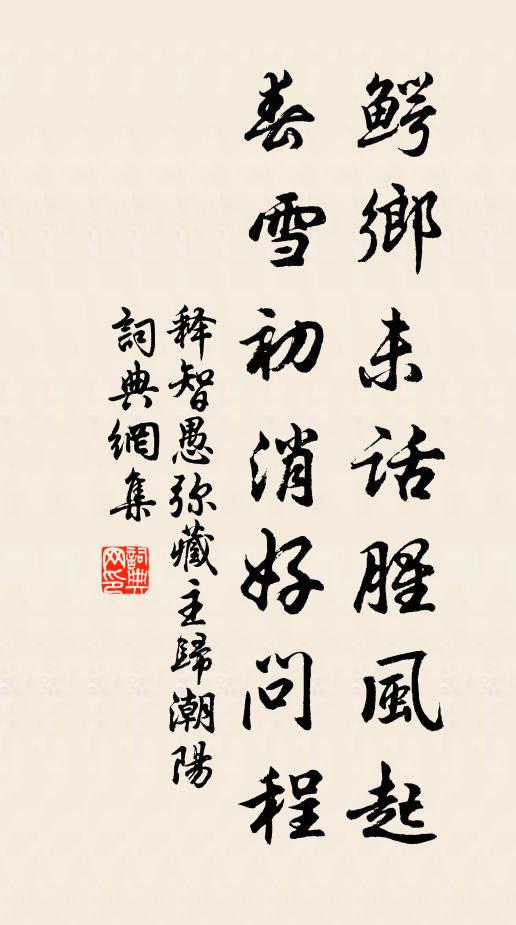 鳄鄉未話腥風起
春雪初消好問程
释智愚弥藏主歸潮陽
詞典網集
詞典网印